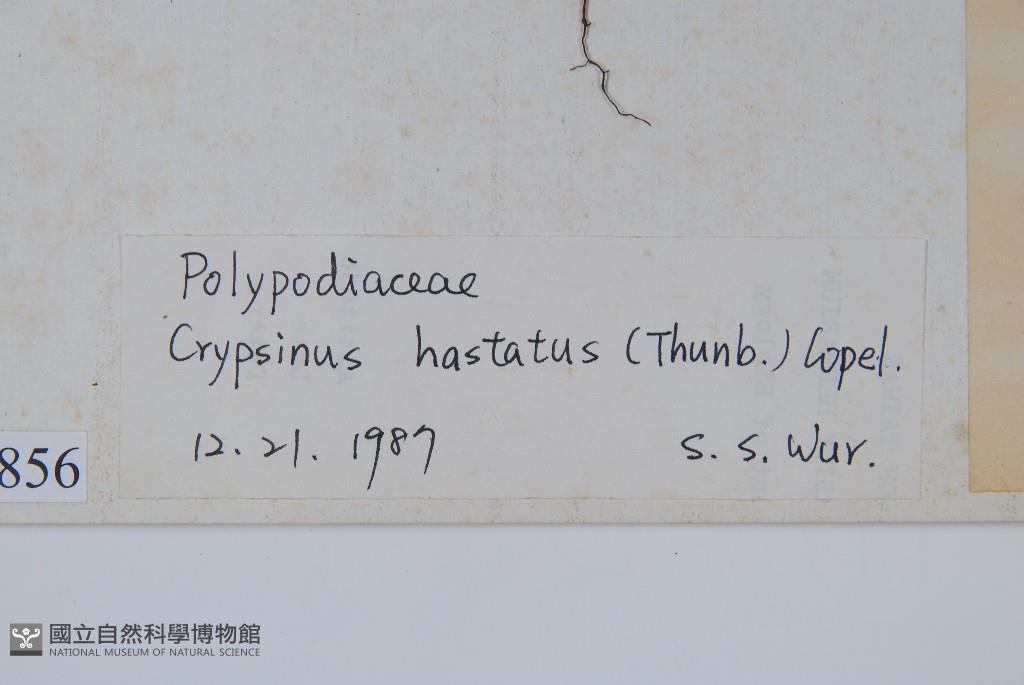 Polypodiaceae
Crypsinus hastatus (Thunb.) Copel.
12. 21. 1987
S. S. Wur.
856
國立自然科學博物館
NATIONAL MUSEUM OF NATURAL SCIENCE